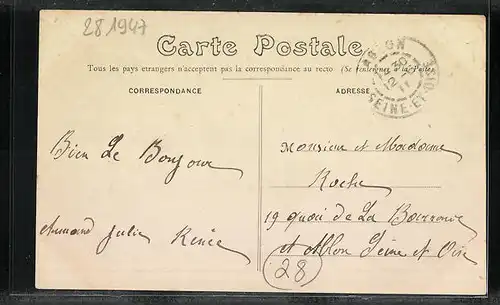 28 1947
Carte Postale
Tous les pays étrangers n'acceptent pas la correspondance au recto (Se renseigner à la Poste)
CORRESPONDANCE
ADRESSE
ABLON
SEINE-ET-OISE
Monsieur et Madame
Roche
19 quai de La Baronnie
et Ablon Seine et Oise
Bien Le Bonjour
Armand Julie Renée
28